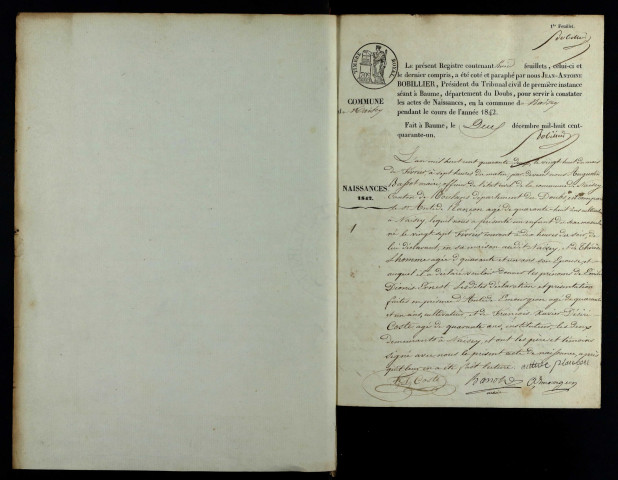 1er Feuillet.
Bobillier
TIMBRE ROYAL
Le présent Registre contenant huit feuillets, celui-ci et
le dernier compris, a été coté et paraphé par nous JEAN-ANTOINE
BOBILLIER, Président du Tribunal civil de première instance
séant à Baume, département du Doubs, pour servir à constater
les actes de Naissances, en la commune de Naisey
pendant le cours de l'année 1842.
COMMUNE
de Naisey
Fait à Baume, le décembre mil-huit cent-
quarante-un.
Bobillier
NAISSANCES
1842.
1
L'an mil huit cent quarante deux le vingt huit du mois
de Février à sept heures du matin, par devant nous Augustin
maire, officier de l'état civil de la commune de Naisey
Canton de Roulans département du Doubs, est comparu
le sr agé de quarante huit ans cultivateur
à Naisey lequel nous a présenté un enfant du sexe masculin
né le vingt sept Février courant à dix heures du soir, de
lui déclarant, en sa maison audit Naisey, et de
Lhomme agée de quarante et un ans son épouse, et
auquel il a déclaré vouloir donner les prénoms de
Ernest. Lesdites déclaration et présentation
faites en présence d' agé de quarante
et un ans, cultivateur, et de François Xavier
Coste agé de quarante ans, instituteur, les deux
demeurants à Naisey, et ont les père et témoins
signé avec nous le présent acte de naissance, après
qu'il leur en a été fait lecture.
Coste